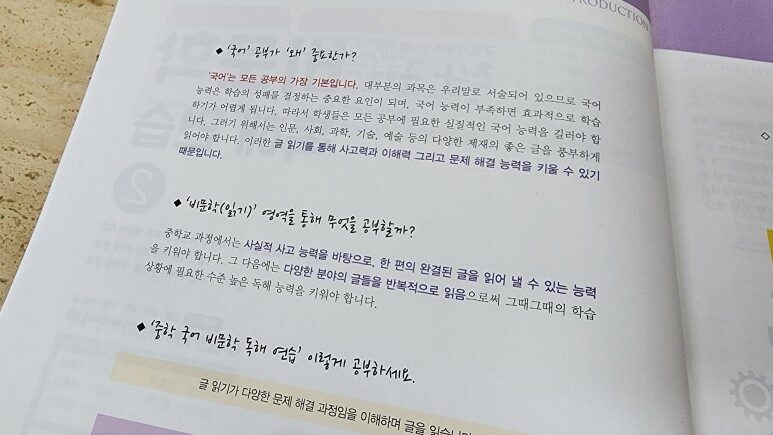 INTRODUCTION
◆ '국어' 공부가 '왜' 중요한가?
'국어'는 모든 공부의 가장 기본입니다. 대부분의 과목은 우리말로 서술되어 있으므로 국어
능력은 학습의 성패를 결정하는 중요한 요인이 되며, 국어 능력이 부족하면 효과적으로 학습
하기가 어렵게 됩니다. 따라서 학생들은 모든 공부에 필요한 실질적인 국어 능력을 길러야 합
니다. 그러기 위해서는 인문, 사회, 과학, 기술, 예술 등의 다양한 제재의 좋은 글을 풍부하게
읽어야 합니다. 이러한 글 읽기를 통해 사고력과 이해력 그리고 문제 해결 능력을 키울 수 있기
때문입니다.
◆ '비문학(읽기)' 영역을 통해 무엇을 공부할까?
중학교 과정에서는 사실적 사고 능력을 바탕으로, 한 편의 완결된 글을 읽어 낼 수 있는 능력
을 키워야 합니다. 그 다음에는 다양한 분야의 글들을 반복적으로 읽음으로써 그때그때의 학습
상황에 필요한 수준 높은 독해 능력을 키워야 합니다.
◆ '중학 국어 비문학 독해 연습' 이렇게 공부하세요.
글 읽기가 다양한 문제 해결 과정임을 이해하며 글을 읽습니다